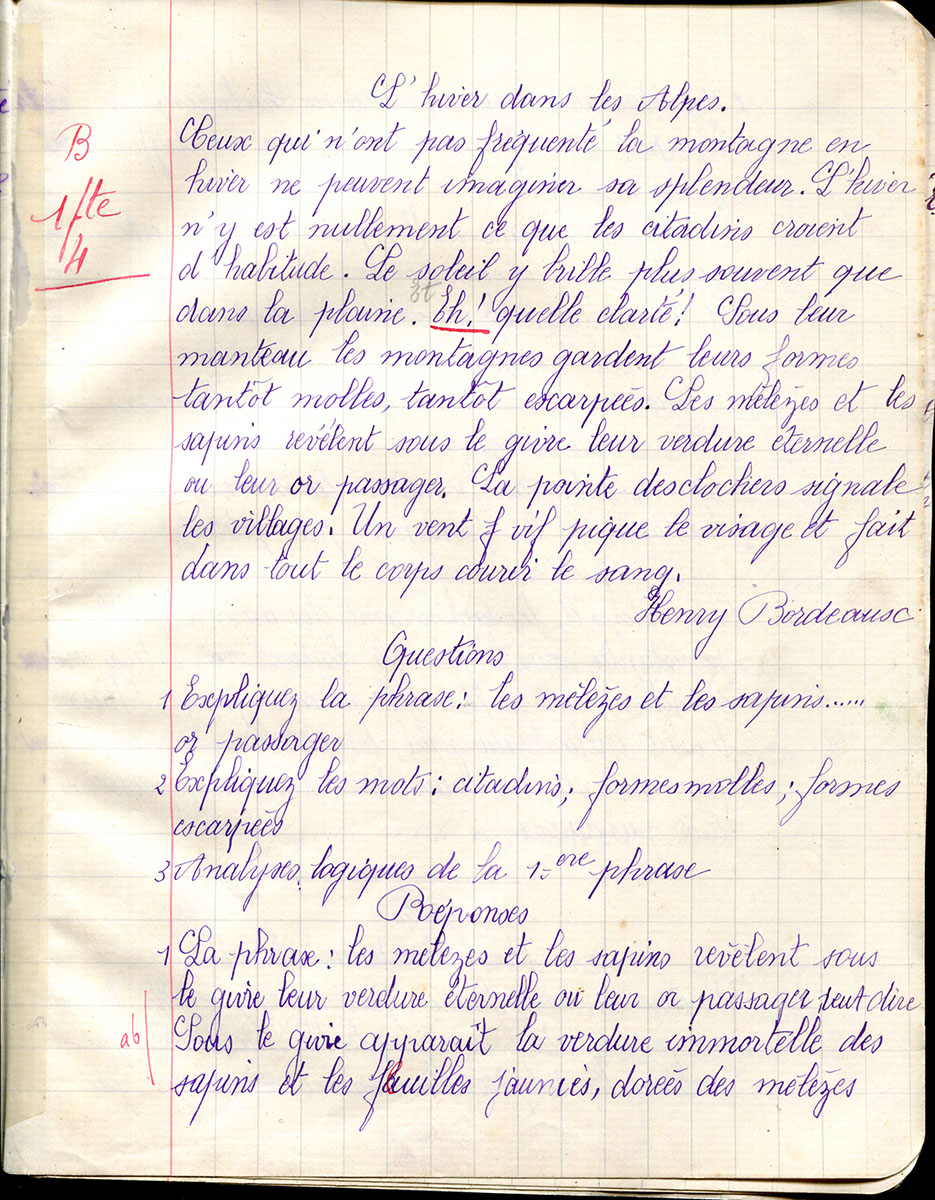 L'hiver dans les Alpes.
B
Ceux qui n'ont pas fréquenté la montagne en
hiver ne peuvent imaginer sa splendeur. L'hiver
1 fte
n'y est nullement ce que les citadins croient
4
d'habitude. Le soleil y brille plus souvent que
Et
dans la plaine. Eh! quelle clarté! Sous leur
manteau les montagnes gardent leurs formes
tantôt molles, tantôt escarpées. Les mélèzes et les
sapins revêlent sous le givre leur verdure éternelle
ou leur or passager. La pointe desclochers signale
les villages. Un vent f vif pique le visage et fait
dans tout le corps courir le sang.
Henry Bordeaux
Questions
1 Expliquez la phrase: les mélèzes et les sapins......
or passager
2 Expliquez les mots: citadins; formes molles; formes
escarpées
3 Analyses logiques de la 1ère phrase
Réponses
1 La phrase: les mélèzes et les sapins revêlent sous
le givre leur verdure éternelle ou leur or passager veut dire
ab
Sous le givre apparaît la verdure immortelle des
sapins et les feuilles jaunies, dorées des mélèzes